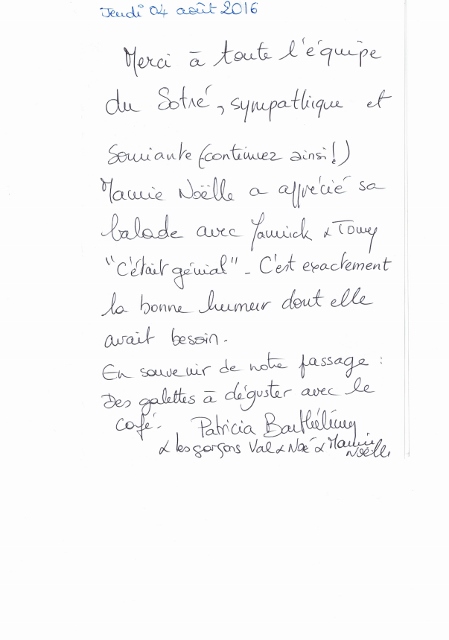 Jeudi 04 août 2016
Merci à toute l'équipe
du Sotré, sympathique et
souriante (continuez ainsi!)
Mamie Noëlle a apprécié sa
balade avec Yannick & Tomy
"C'était génial" - C'est exactement
la bonne humeur dont elle
avait besoin.
En souvenir de notre passage :
Des galettes à déguster avec le
café. Patricia Barthélémy
& les garçons Val & Noé & Mamie
Noëlle